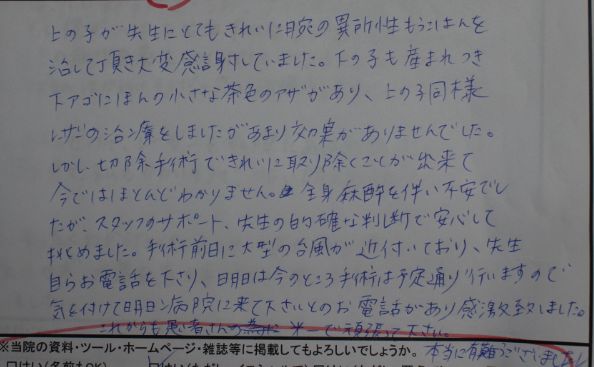 上の子が先生にとてもきれいに腕の異所性もうこはんを
治して頂き大変感謝していました。下の子も産まれつき
下アゴにほんの小さな茶色のアザがあり、上の子同様
レザーの治療をしましたがあまり効果がありませんでした。
しかし切除手術できれいに取り除くことが出来て
今ではほとんどわかりません。全身麻酔を伴い不安でし
たが、スタッフのサポート、先生の的確な判断で安心して
挑めました。手術前日に大型の台風が近付いており、先生
自らお電話を下さり、明日は今のところ手術は予定通り行いますので
気を付けて明日病院に来て下さいとのお電話があり感激致しました。
これからも患者さんの為に 頑張って下さい。
本当に有難うございました
※当院の資料・ツール・ホームページ・雑誌等に掲載してもよろしいでしょうか。